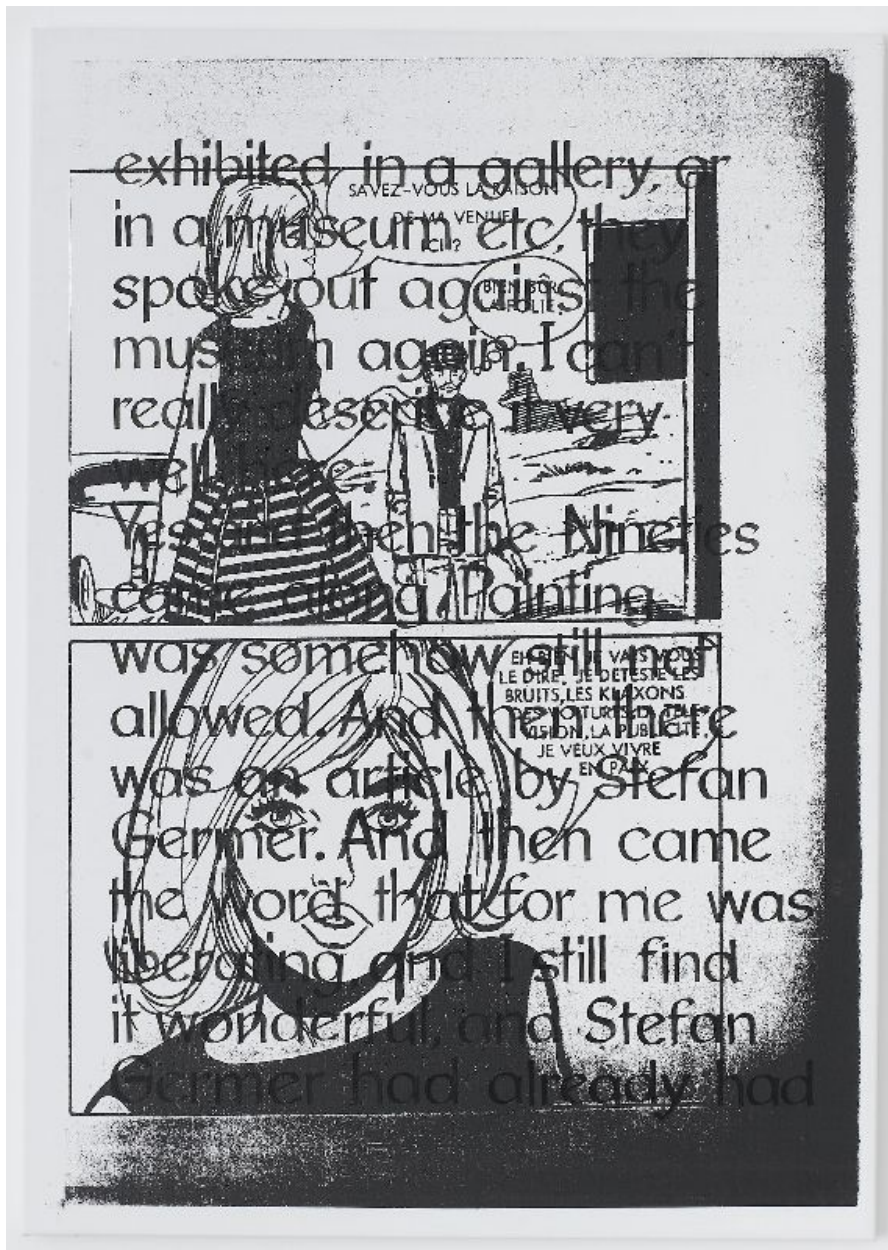 exhibited in a gallery, or
in a museum etc, they
spoke out against the
museum again. I can't
really describe it very
well here.
Yes and then the Nineties
came along. Painting
was somehow still not
allowed. And then there
was an article by Stefan
Germer. And then came
the word that for me was
liberating, and I still find
it wonderful, and Stefan
Germer had already had
SAVEZ-VOUS LA RAISON
DE MA VENUE
ICI ?
BIEN SÛR
LA FOLIE.
EH BIEN, JE VAIS VOUS
LE DIRE! JE DÉTESTE LES
BRUITS, LES KLAXONS
DES VOITURES, LA TÉLÉ-
VISION, LA PUBLICITÉ,
JE VEUX VIVRE
EN PAIX